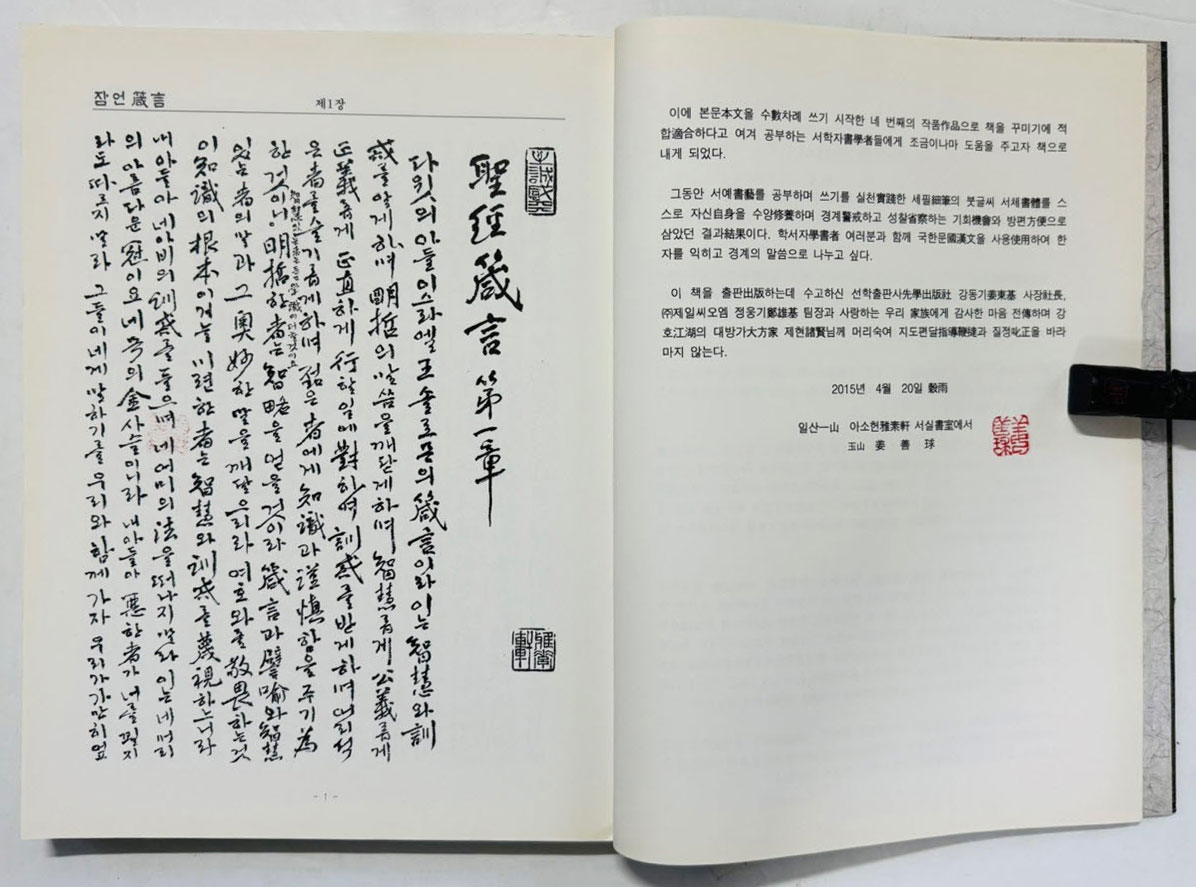 이에 본문本文을 수數차례 쓰기 시작한 네 번째의 작품作品으로 책을 꾸미기에 적
합適合하다고 여겨 공부하는 서학자書學者들에게 조금이나마 도움을 주고자 책으로
내게 되었다.
그동안 서예書藝를 공부하며 쓰기를 실천實踐한 세필細筆의 붓글씨 서체書體를 스
스로 자신自身을 수양修養하며 경계警戒하고 성찰省察하는 기회機會와 방편方便으로
삼았던 결과結果이다. 학서자學書者 여러분과 함께 국한문國漢文을 사용使用하여 한
자를 익히고 경계의 말씀으로 나누고 싶다.
이 책을 출판出版하는데 수고하신 선학출판사先學出版社 강동기姜東基 사장社長,
㈜제일씨오엠 정웅기鄭雄基 팀장과 사랑하는 우리 家族에게 감사한 마음 전하며 강
호江湖의 대방가大方家 제현諸賢님께 머리숙여 지도편달指導鞭撻과 질정叱正을 바라
마지 않는다.
2015년 4월 20일 穀雨
일산一山 아소헌雅素軒 서실書室에서
玉山 姜善球
잠언 箴言
제1장
聖經箴言第一章
다윗의 아들 이스라엘 王 솔로몬의 箴言이라 이는 智慧와 訓
戒를 알게 하며 明哲의 말씀을 깨닫게 하며 智慧롭게 公義롭게
正義롭게 正直하게 行할 일에 對하여 訓戒를 받게 하며 어리석
은 者를 슬기롭게 하며 젊은 者에게 知識과 謹愼함을 주기 爲
한 것이니 智慧있는 者는 듣고 學識이 더할 것이요 明哲한 者는 智略을 얻을 것이라 箴言과 譬喻와 智慧
있는 者의 말과 그 奧妙한 말을 깨달으리라 여호와를 敬畏하는 것
이 知識의 根本이거늘 미련한 者는 智慧와 訓戒를 蔑視하느니라
내 아들아 네 아비의 訓戒를 들으며 네 어미의 法을 떠나지 말라 이는 네 머리
의 아름다운 冠이요 네 목의 金사슬이니라 내 아들아 惡한 者가 너를 꾈지
라도 따르지 말라 그들이 네게 말하기를 우리와 함께 가자 우리가 가만히 엎
雅素軒
- 1 -